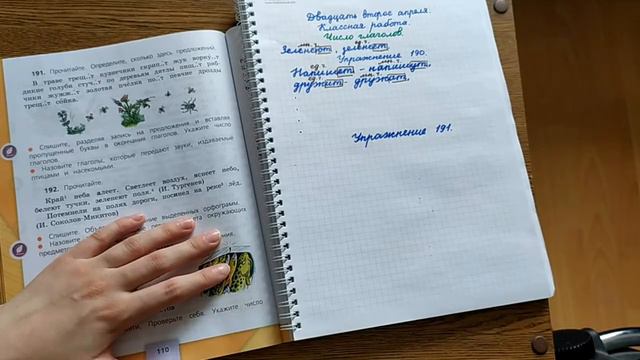 191. Прочитайте. Определите, сколько здесь предложений.
В траве трещ..т кузнечики скрип..т жук ворку..т
дикие голуби стуч..т по деревьям дятлы пищ..т
чики жужж..т золотая пчёлка по..т певчие дрозды
трещ..т сойка.
Спишите, разделяя запись на предложения и вставляя
пропущенные буквы в окончания глаголов. Укажите число
глаголов.
Назовите глаголы, которые передают звуки, издаваемые
птицами и насекомыми.
192. Прочитайте.
Край неба алеет. Светлеет воздух, яснеет небо,
белеют тучки, зеленеют поля. (И. Тургенев)
Потемнели на полях дороги, посинел на реке лёд.
(И. Соколов-Микитов)
Спишите. выделенных орфограмм.
Назовите окружающих
Проверьте себя. Укажите число
110
Двадцать второе апреля.
Классная работа.
Число глаголов.
мн.ч. ед.ч.
Зеленеют, зеленеет.
Упражнение 190.
ед.ч. мн.ч.
Напишет - напишут,
ед.ч. мн.ч.
дружит - дружат,
Упражнение 191.